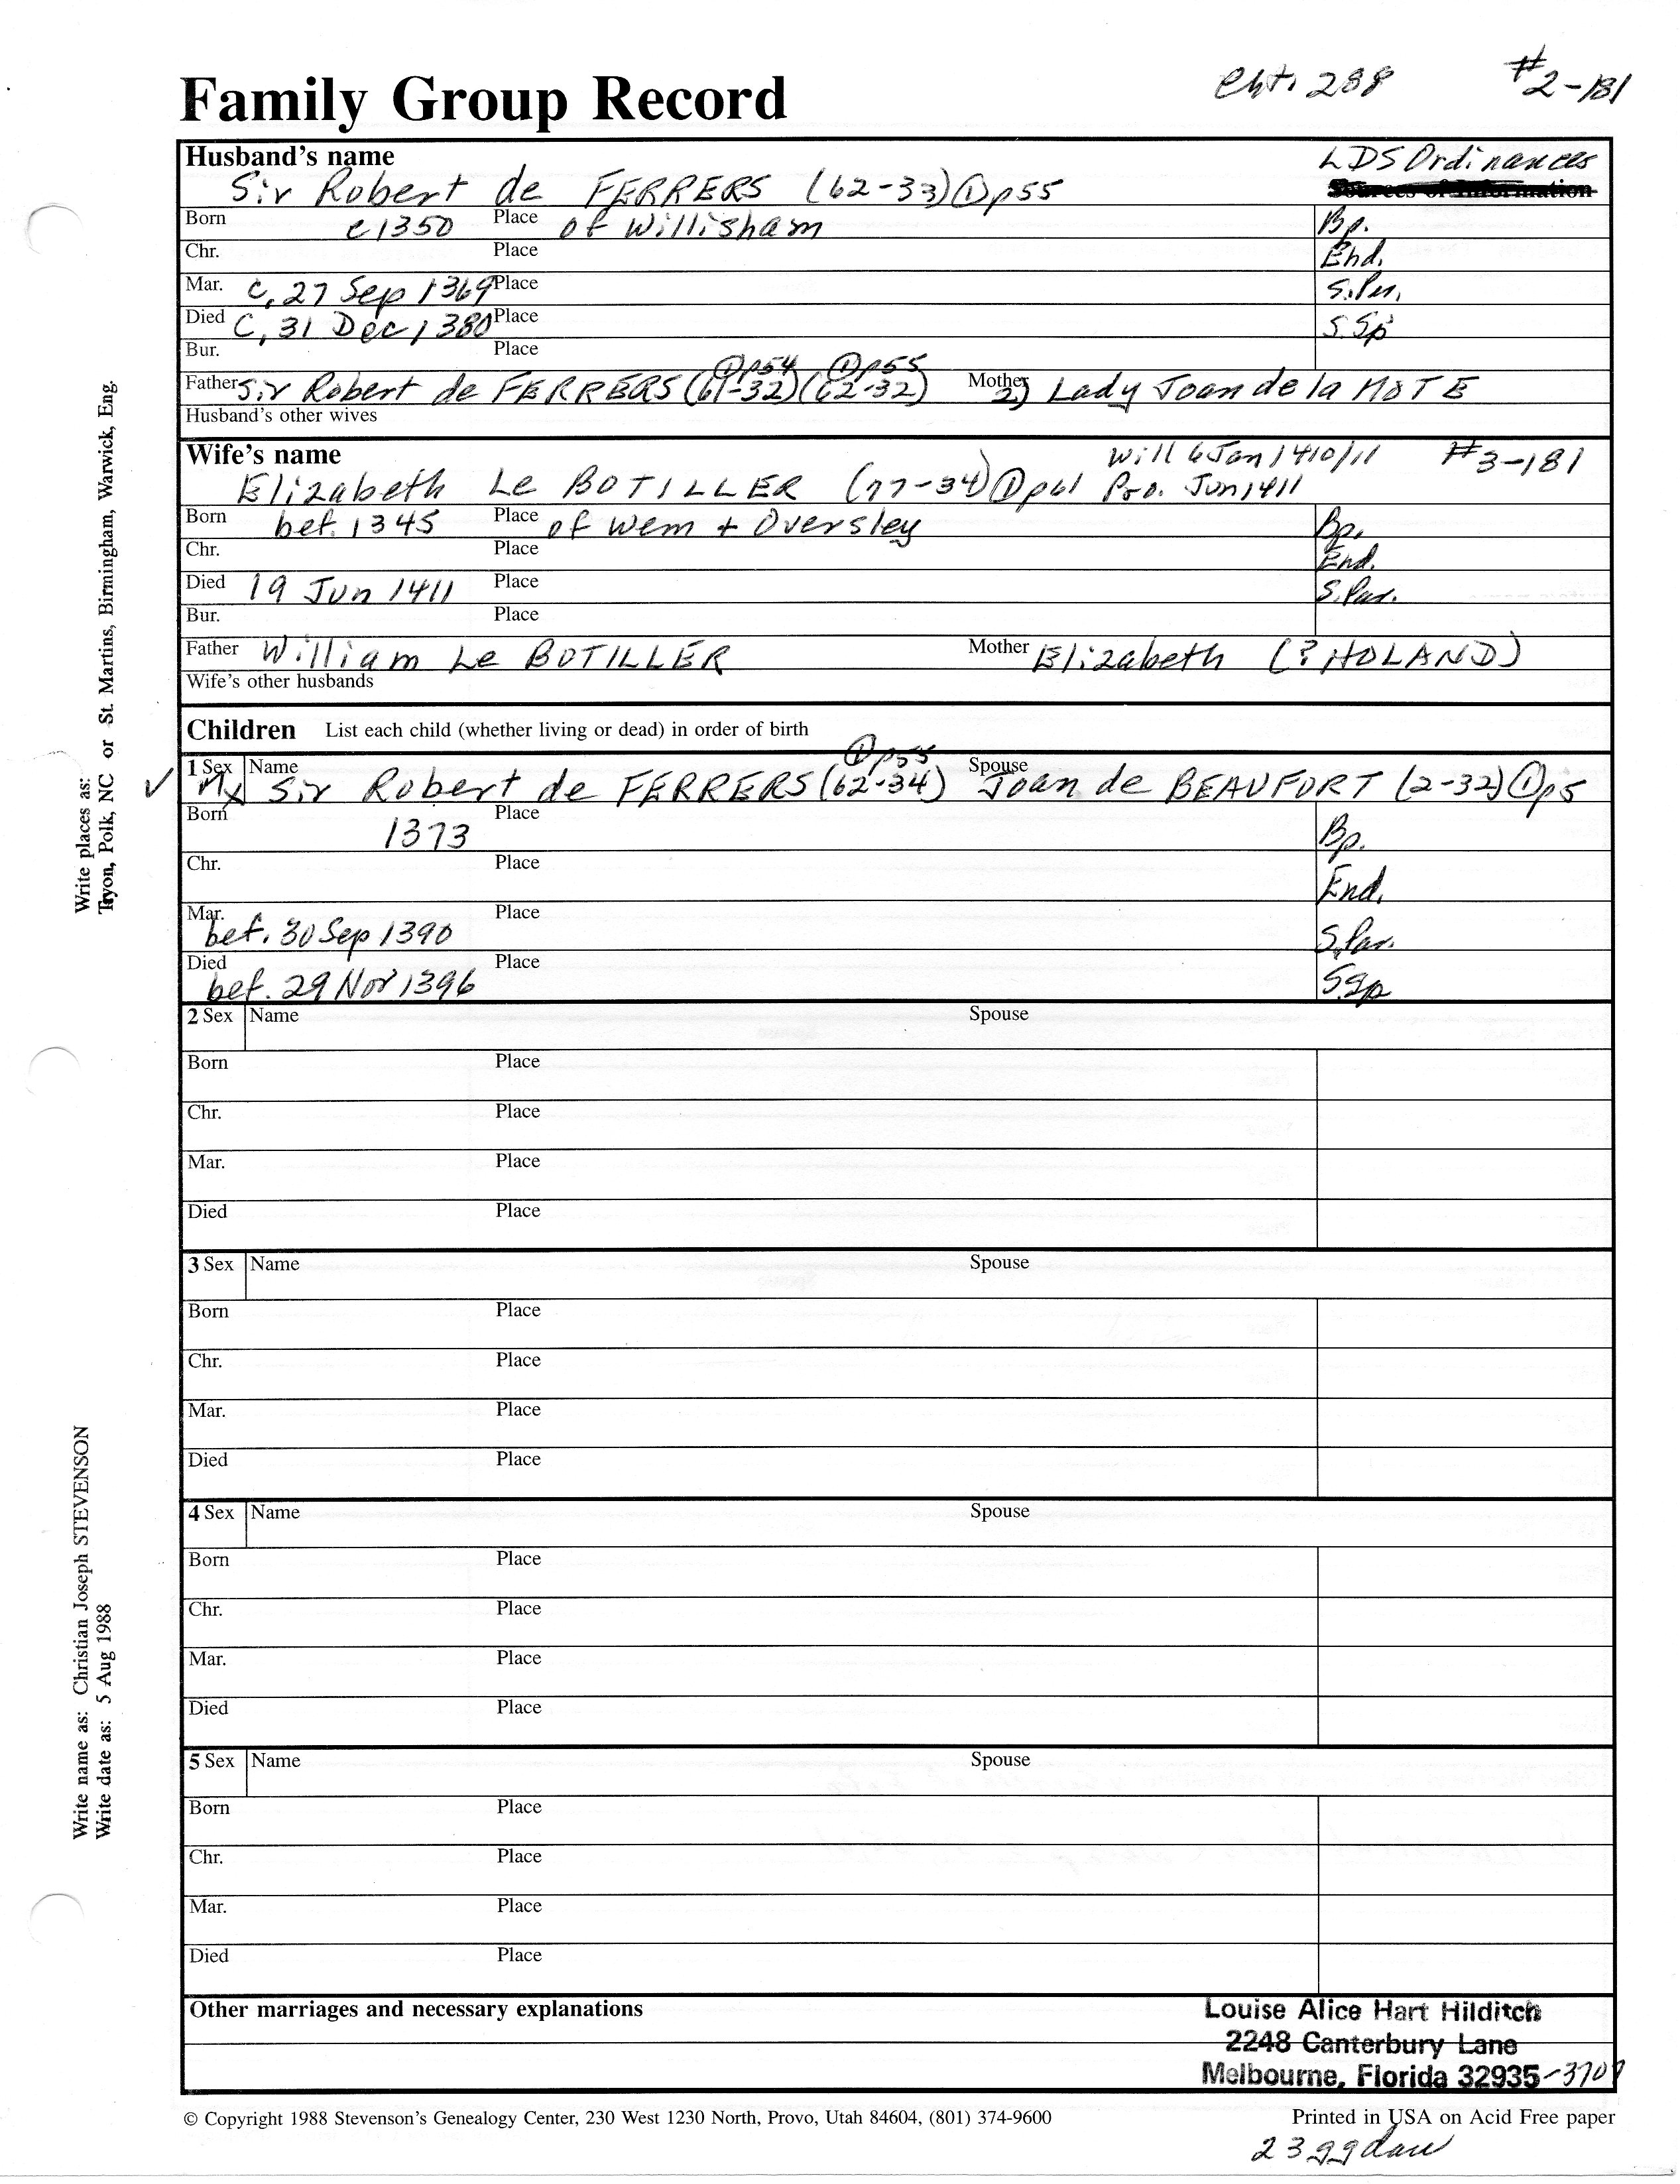 Family Group Record
Cht. 288 #2-181
Husband's name LDS Ordinances
Sir Robert de FERRERS (62-33) ① p55 Sources of Information
Born c1350 Place of Willisham Bp.
Chr. Place End.
Mar. C. 27 Sep 1369 Place
Died C. 31 Dec 1380 Place S Sp
Bur. Place
① p54 ① p55
Father Sir Robert de FERRERS (61-32) (62-32) Mother 2) Lady Joan de la MOTE
Husband's other wives
Wife's name Will 6 Jan 1410/11 #3-181
Elizabeth Le BOTILLER (77-34) ① p61 Pro. Jun 1411
Born bef. 1345 Place of Wem + Oversley Bp.
Chr. Place End.
Died 19 Jun 1411 Place S. Par.
Bur. Place
Father William Le BOTILLER Mother Elizabeth (? HOLAND)
Wife's other husbands
Children List each child (whether living or dead) in order of birth
① p55
✓ 1 Sex M x Name Sir Robert de FERRERS (62-34) Spouse Joan de BEAUFORT (2-32) ① p5
Born 1373 Place Bp.
Chr. Place End.
Mar. bef. 30 Sep 1390 Place S. Par.
Died bef. 29 Nov 1396 Place S. Sp
2 Sex Name Spouse
Born Place
Chr. Place
Mar. Place
Died Place
3 Sex Name Spouse
Born Place
Chr. Place
Mar. Place
Died Place
4 Sex Name Spouse
Born Place
Chr. Place
Mar. Place
Died Place
5 Sex Name Spouse
Born Place
Chr. Place
Mar. Place
Died Place
Other marriages and necessary explanations
Louise Alice Hart Hilditch
2248 Canterbury Lane
Melbourne, Florida 32935-3707
© Copyright 1988 Stevenson's Genealogy Center, 230 West 1230 North, Provo, Utah 84604, (801) 374-9600 Printed in USA on Acid Free paper
23 gg dau
Write places as:
Tryon, Polk, NC or St. Martins, Birmingham, Warwick, Eng.
Write name as: Christian Joseph STEVENSON
Write date as: 5 Aug 1988